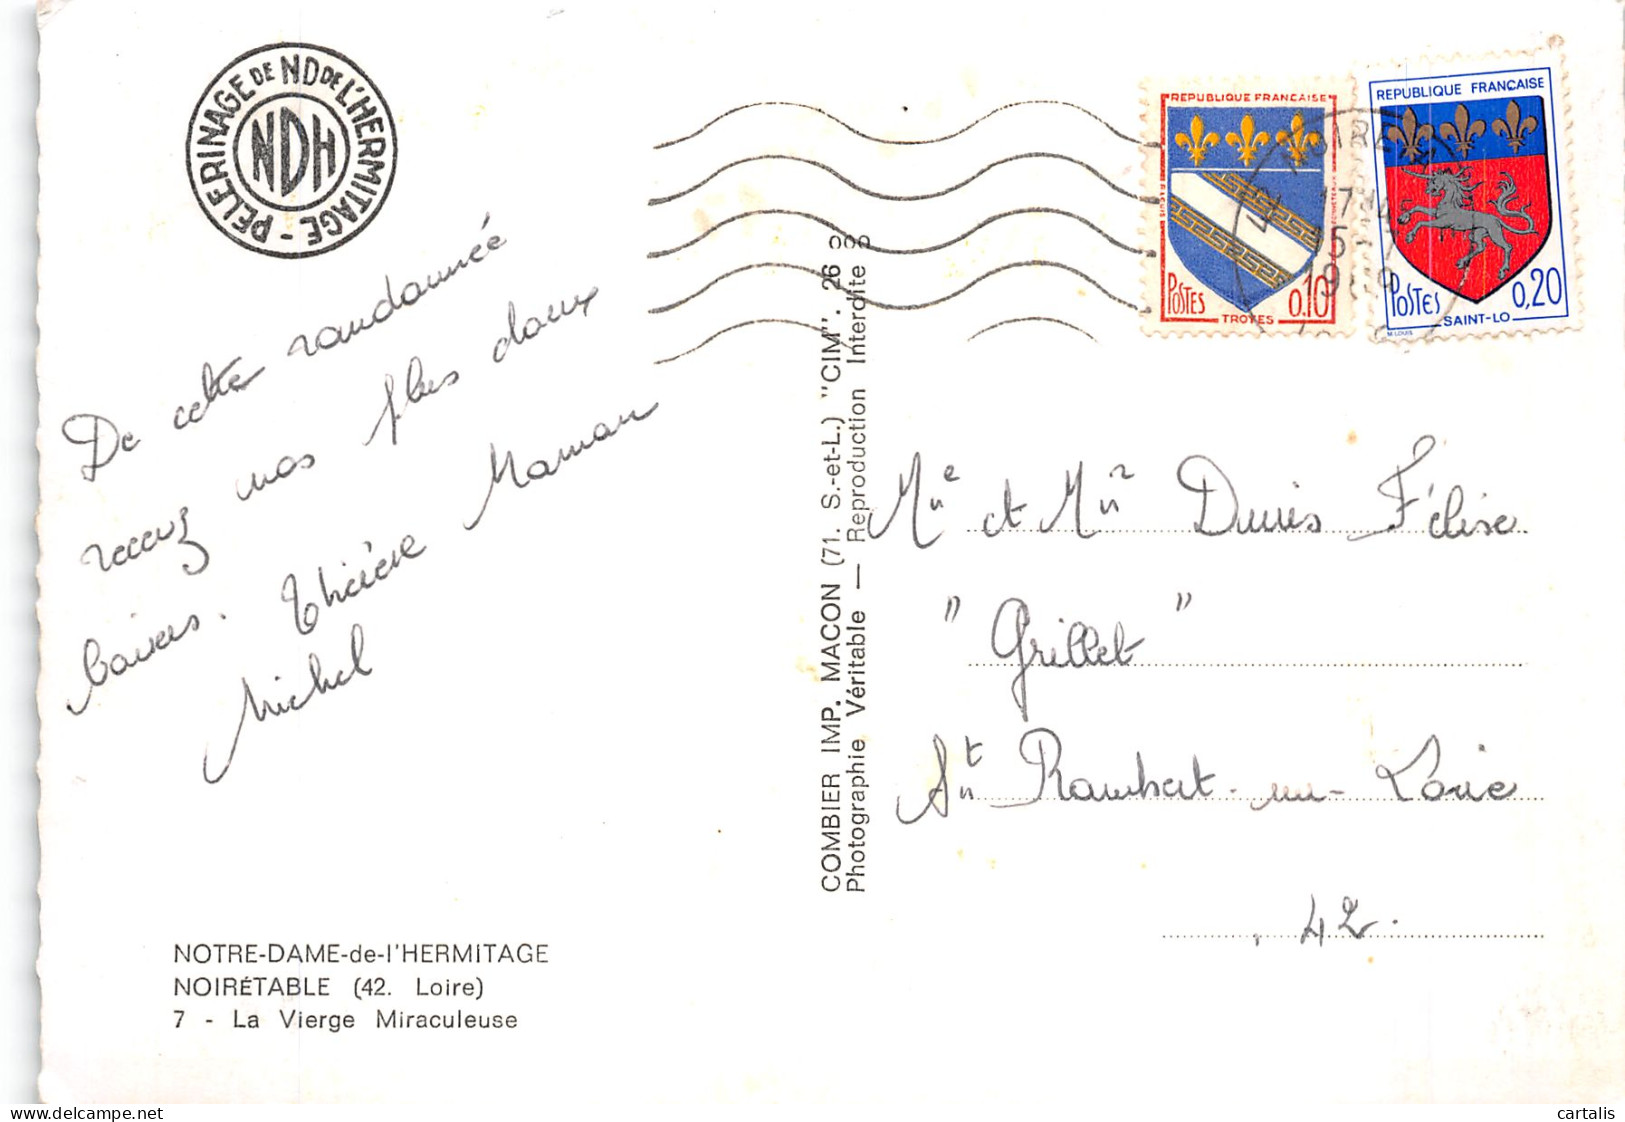 PÈLERINAGE DE ND DE L'HERMITAGE -
NDH
De cette randonnée
recevez nos plus doux
baisers. Maman
Michel
NOTRE-DAME-de-l'HERMITAGE
NOIRÉTABLE (42. Loire)
7 - La Vierge Miraculeuse
COMBIER IMP. MACON (71. S.-et-L.) "CIM". 26 000
Photographie Véritable — Reproduction Interdite
REPUBLIQUE FRANÇAISE
POSTES 0,10
TROYES
REPUBLIQUE FRANÇAISE
POSTES 0,20
SAINT-LO
M. LOUIS
et Félise
"Grillet"
St Rambert-sur-Loire
42.
cartalis